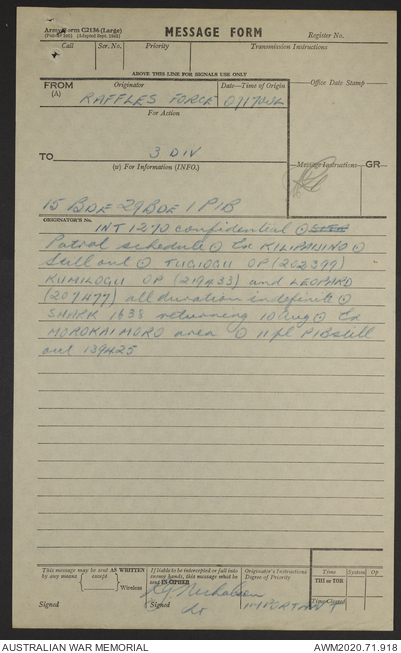 Army Form C2136 (Large)
MESSAGE FORM
Register No.
Call Ser. No. Priority Transmission Instructions
ABOVE THIS LINE FOR SIGNALS USE ONLY
FROM
(A)
Originator
Date—Time of Origin
Office Date Stamp
RAFFLES FORCE
For Action
TO
3 DIV
(w) For Information (INFO.)
Message Instructions
GR
15 BDE 29 BDE 1 PIB
ORIGINATOR'S No.
INT 1270 confidential ⊙
Patrol schedule ⊙ Ex KILIPAIJINO ⊙
Still out ⊙ TUGIOGU OP (202399)
KUMILOGU OP (219433) and LEOPARD
(207477) all duration indefinite ⊙
SHARK 1638 returning 10 Aug ⊙ Ex
MOROKAIMORO area ⊙ 11 pl PIB still
out 139425
This message may be sent AS WRITTEN
by any means
(except
)
Wireless
If liable to be intercepted or fall into
enemy hands, this message must be
sent IN CIPHER
Originator's Instructions
Degree of Priority
Time System Op
THI or TOR
Time Cleared
Signed
(Signed
Nicholson
Lt
IMPORTANT
AUSTRALIAN WAR MEMORIAL
AWM2020.71.918